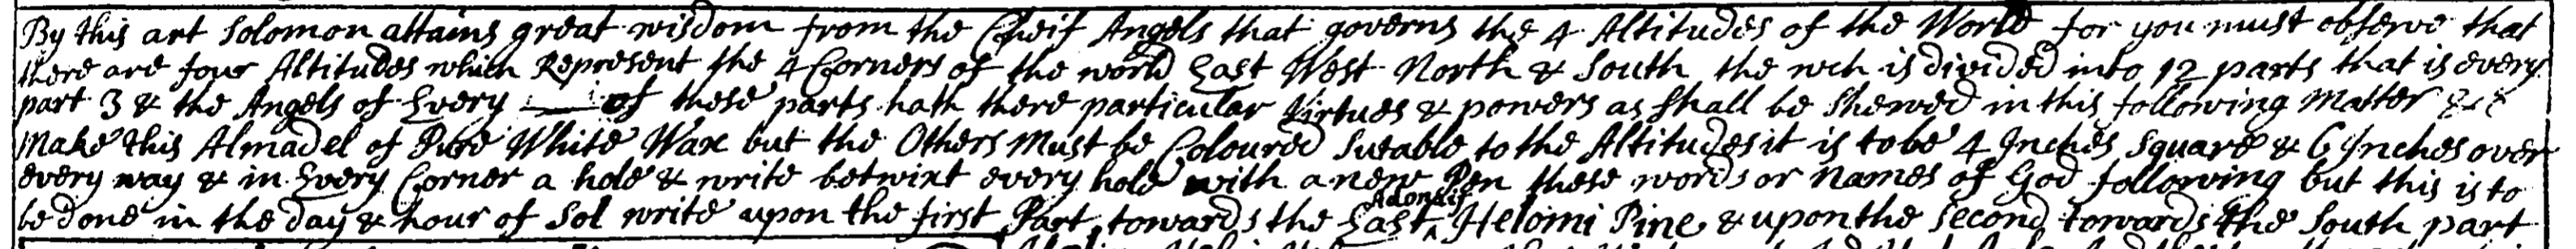 By this art Solomon attains great wisdom from the Cheif Angels that governs the 4 Altitudes of the World for you must observe that
there are four Altitudes which Represent the 4 Corners of the world East West North & South the wch is divided into 12 parts that is every
part 3 & the Angels of Every of these parts hath there particular Virtues & powers as shall be shewed in this following Matter &c
Make this Almadel of Pure White Wax but the Others Must be Coloured Sutable to the Altitudes it is to be 4 Inches Square & 6 Inches over
every way & in Every Corner a hole & write betwixt every hole with a new Pen these words or names of God following but this is to
be done in the day & hour of Sol write upon the first Part towards the East Adonaij Helomi Pine & upon the second towards the South part